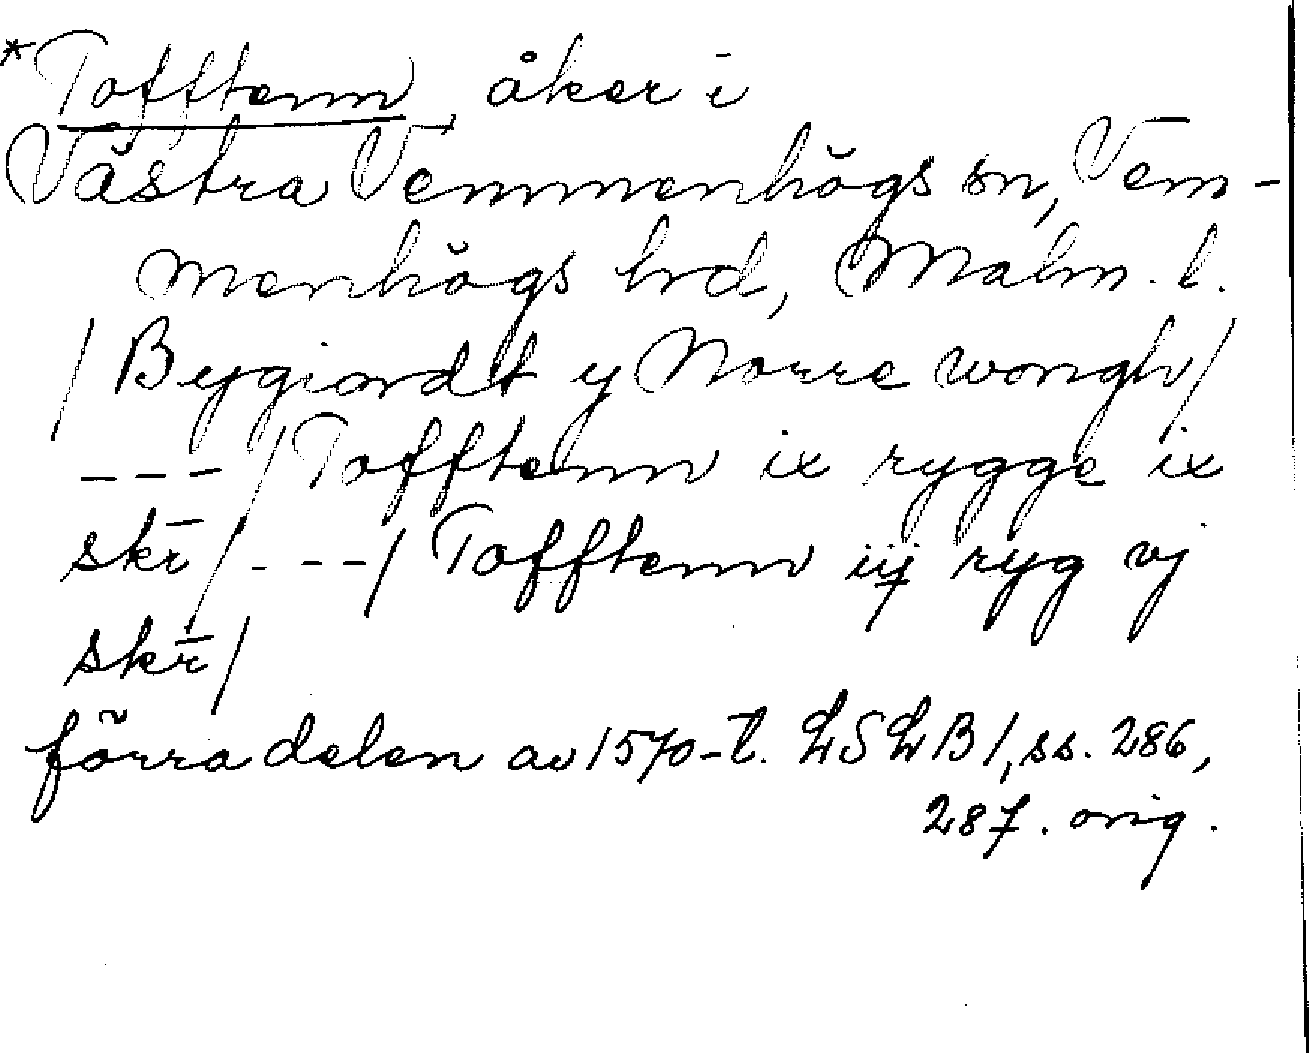 *Tofftenn, åker i
Västra Vemmenhögs sn, Vem-
menhögs hrd, Malm. l.
/Bygiordt y Norre wongh/
---/Tofftenn ix rygge ix
skr̄/---/Tofftenn iij ryg vj
skr̄/
förra delen av 1570-t. LSLB 1, ss. 286,
287. orig.